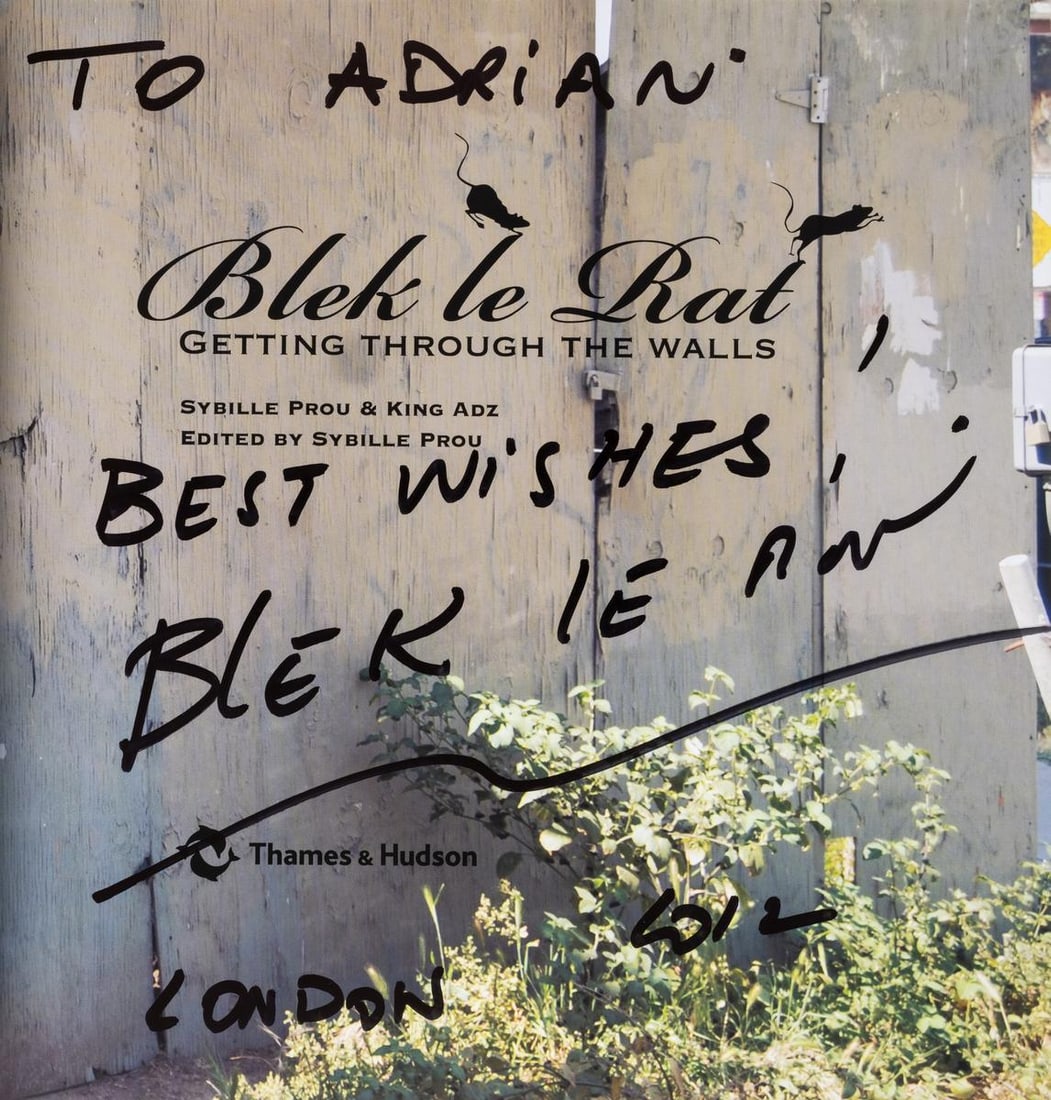 TO ADRIAN
Blek le Rat
GETTING THROUGH THE WALLS
SYBILLE PROU & KING ADZ
EDITED BY SYBILLE PROU
BEST WISHES,
BLEK LE RAT
Thames & Hudson
2012
LONDON